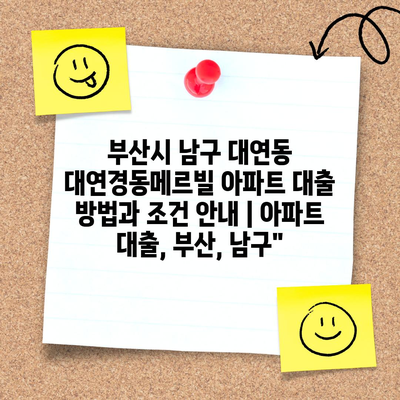 부산시 남구 대연동
대연경동메르빌 아파트 대출
방법과 조건 안내 | 아파트
대출, 부산, 남구"